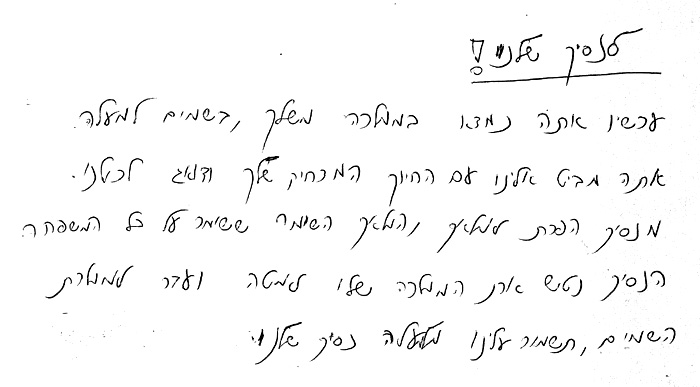 לנסיך שלנו!
עכשיו אתה נמצא בממלכה משלך, בשמים למעלה.
אתה מביט אלינו עם החיוך המבחיק שלך ודואג לכולנו.
מנסיך הפכת למלאך, המלאך השומר ששומר על כל המשפחה
הנסיך נטש את הממלכה שלו למטה ועבר לממלכת
השמים, תשמור עלינו מלמעלה נסיך שלנו